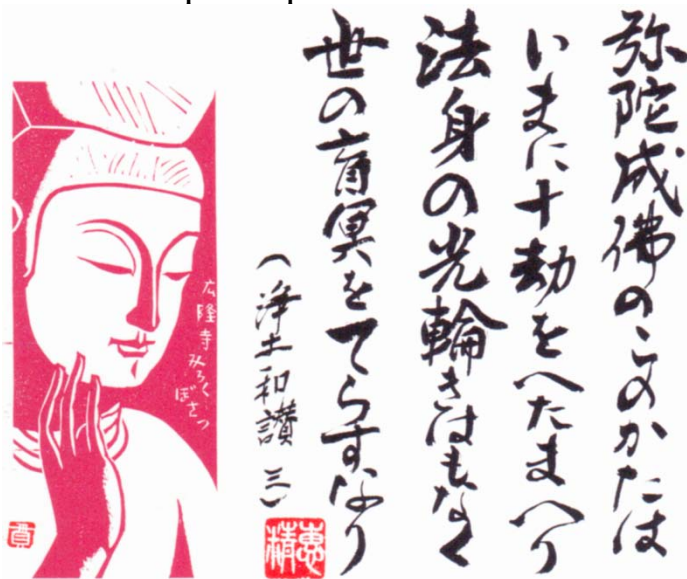 弥陀成佛のこのかたは
いまに十劫をへたまへり
法身の光輪きはもなく
世の盲冥をてらすなり
(浄土和讃 三)
恵精
広隆寺みろく
ぼさつ
貢